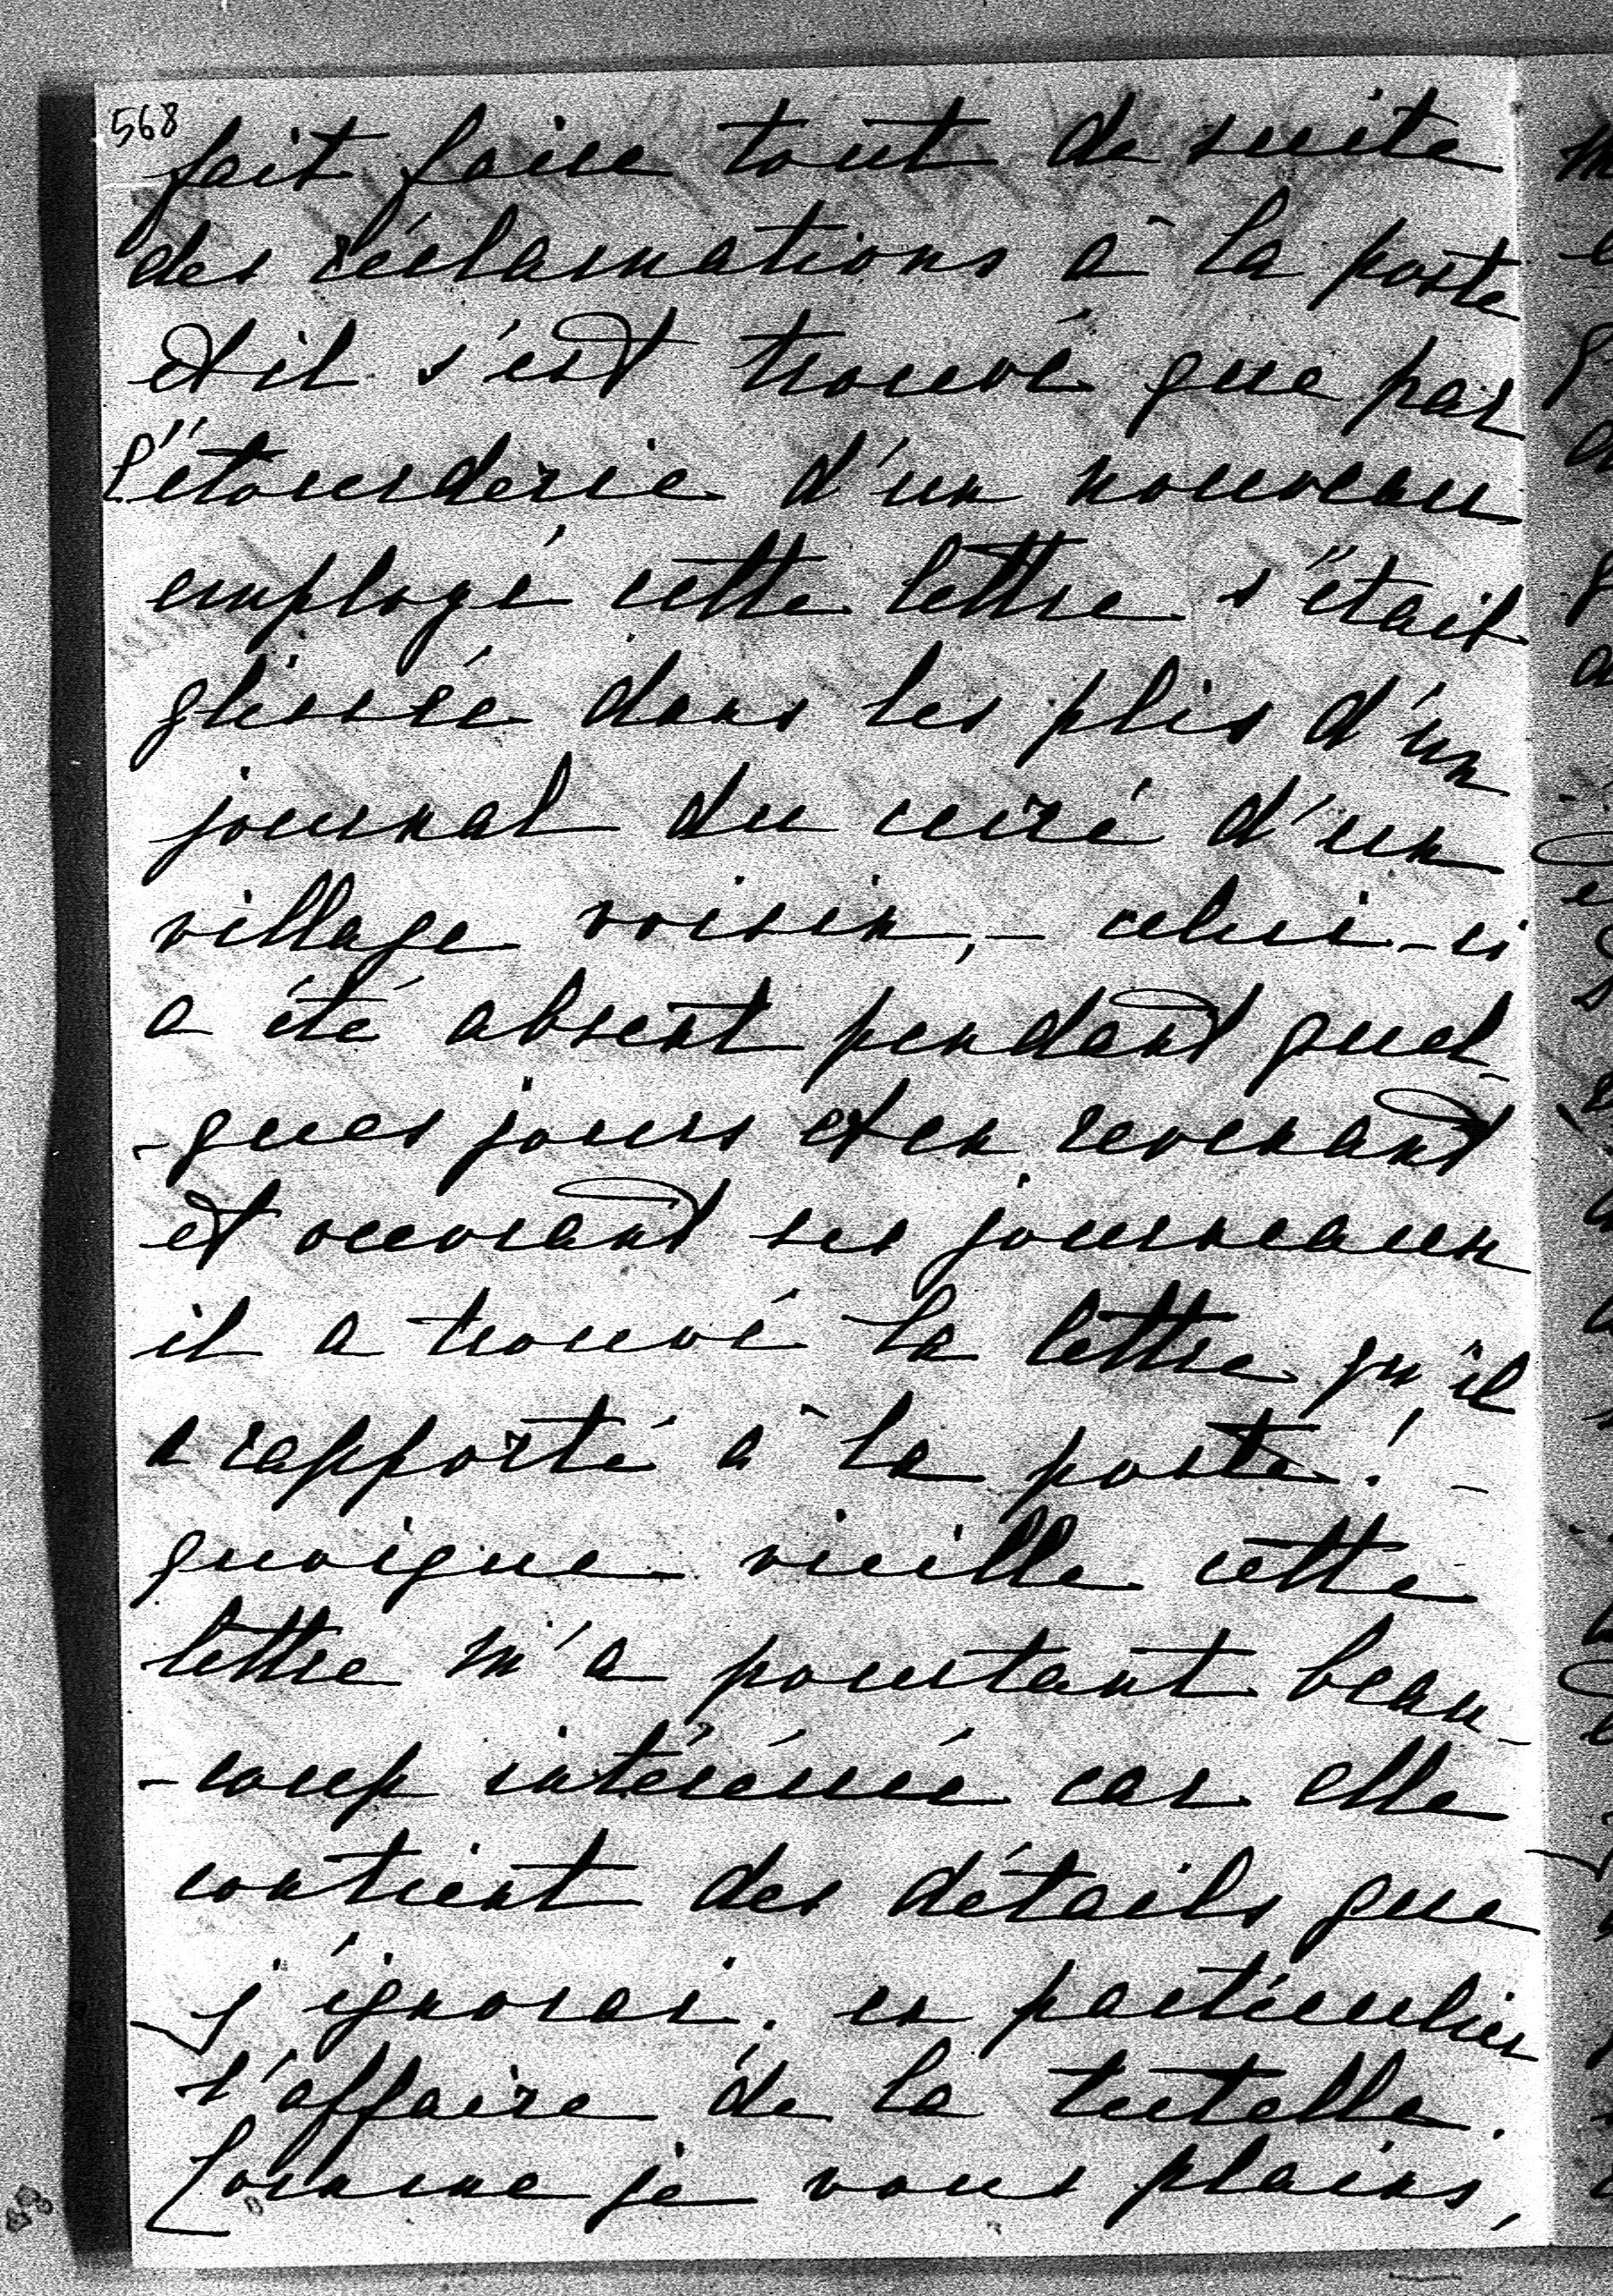 568
fait faire tout de suite
des réclamations à la poste
et il s'est trouvé que par
l'étourderie d'un nouveau
employé cette lettre s'était
glissée dans les plis d'un
journal du curé d'un
village voisin, – celui-ci
a été absent pendant quel-
-ques jours et en revenant
et ouvrant ses journeaux
il a trouvé la lettre qu'il
a rapporté à la poste! –
quoique vieille cette
lettre m'a pourtant beau-
-coup intéréssé car elle
contient des détails que
j'ignorai. en particulier
l'affaire de la tutelle.
Comme je vous plains,